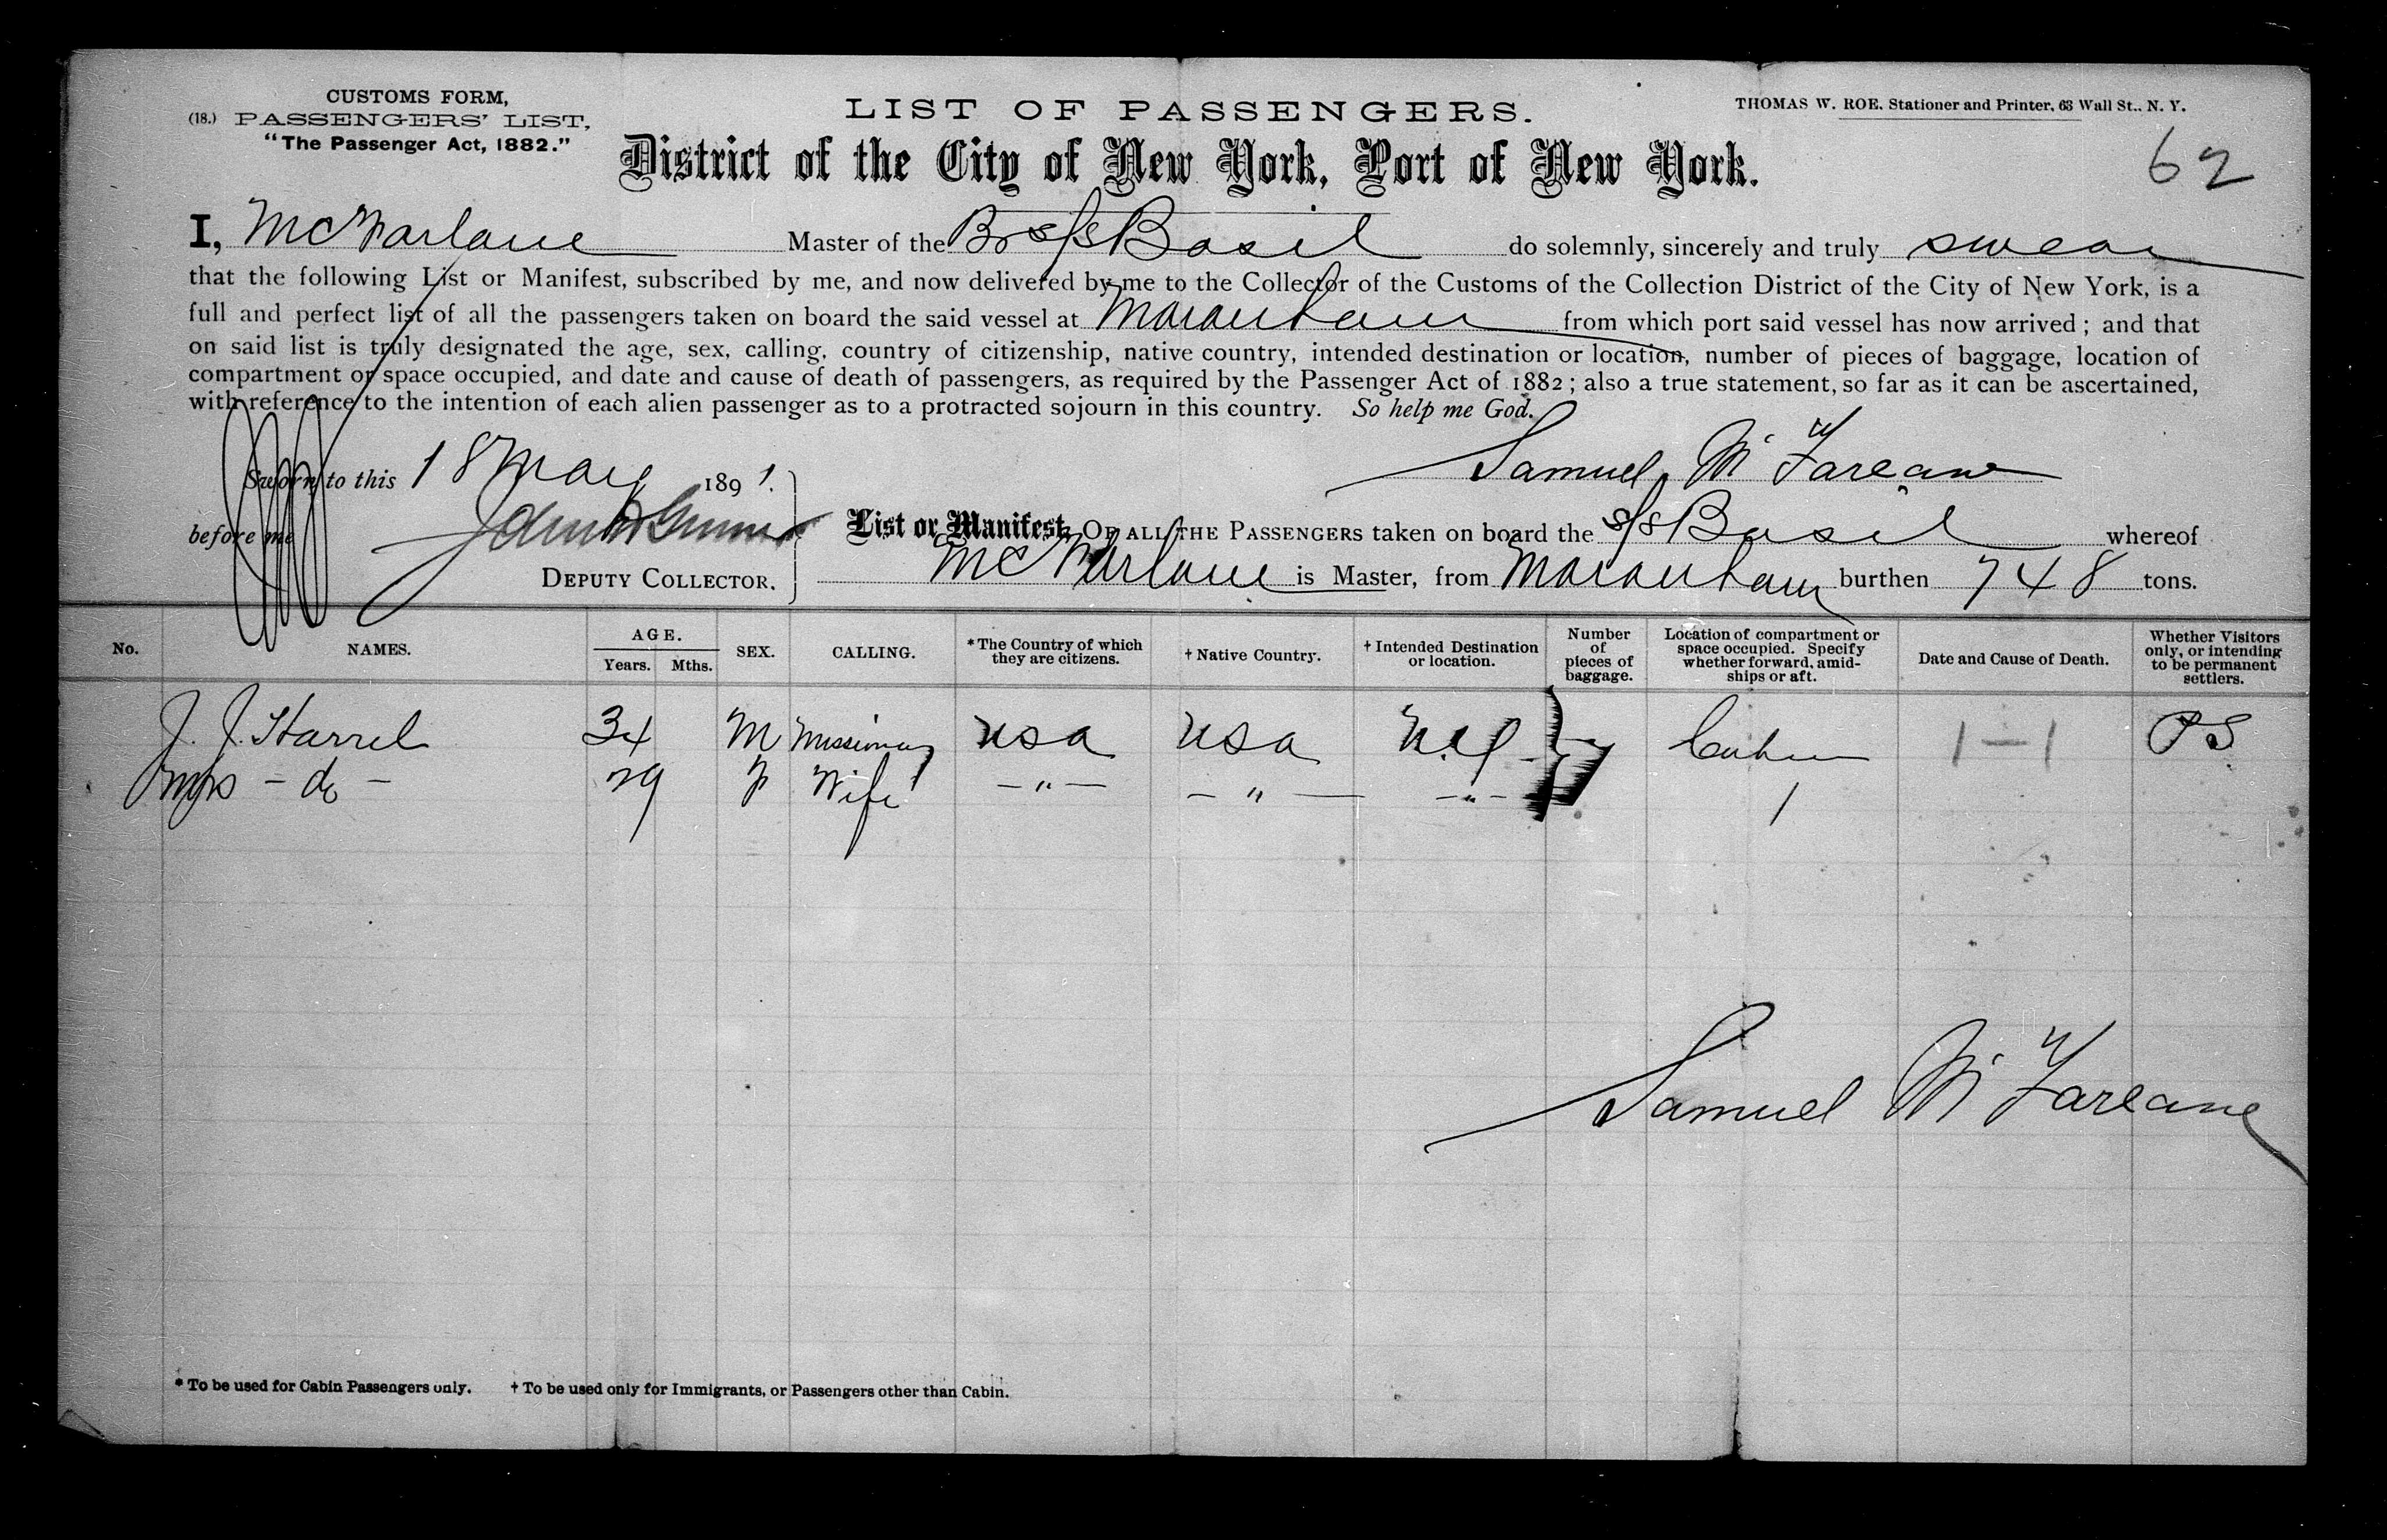 CUSTOMS FORM,
(18.) PASSENGERS' LIST,
"The Passenger Act, 1882."
LIST OF PASSENGERS.
THOMAS W. ROE. Stationer and Printer, 63 Wall St., N. Y.
62
District of the City of New York, Port of New York.
I, McFarlane Master of the Br s/s Basil do solemnly, sincerely and truly swear
that the following List or Manifest, subscribed by me, and now delivered by me to the Collector of the Customs of the Collection District of the City of New York, is a
full and perfect list of all the passengers taken on board the said vessel at Maranham from which port said vessel has now arrived; and that
on said list is truly designated the age, sex, calling, country of citizenship, native country, intended destination or location, number of pieces of baggage, location of
compartment or space occupied, and date and cause of death of passengers, as required by the Passenger Act of 1882; also a true statement, so far as it can be ascertained,
with reference to the intention of each alien passenger as to a protracted sojourn in this country. So help me God.
Sworn to this 18 May 1891.
Samuel McFarlane
before me
DEPUTY COLLECTOR.
List or Manifest, OF ALL THE PASSENGERS taken on board the s/s Basil whereof
McFarlane is Master, from Maranham burthen 748 tons.
No. NAMES. AGE. Years. Mths. SEX. CALLING. *The Country of which they are citizens. † Native Country. † Intended Destination or location. Number of pieces of baggage. Location of compartment or space occupied. Specify whether forward, amidships or aft. Date and Cause of Death. Whether Visitors only, or intending to be permanent settlers.
J. J. Harrel 34 M Missionary USA USA 7 Cabin 1—1 PS
Mrs - do - 29 F Wife — " — — " — — " —
Samuel McFarlane
* To be used for Cabin Passengers only. † To be used only for Immigrants, or Passengers other than Cabin.